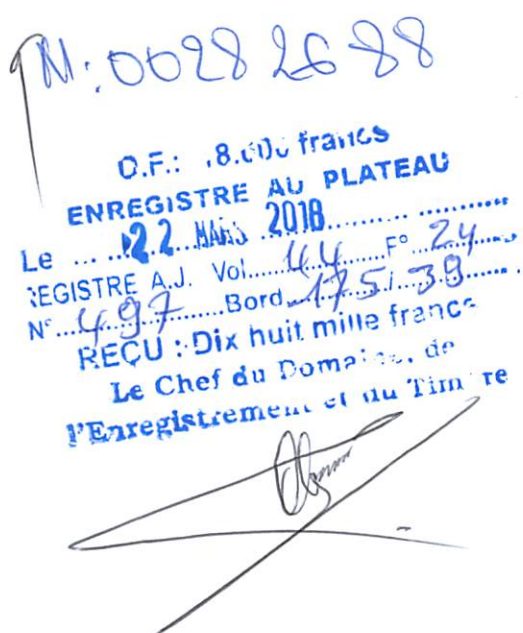 N: 00282688
D.F.: 18.000 francs
ENREGISTRE AU PLATEAU
Le ... 22 MARS 2018 ...
REGISTRE A.J. Vol. 44 F° 24
N° 497 Bord 175 / 39
REÇU : Dix huit mille francs
Le Chef du Domaine, de
l'Enregistrement et du Timbre